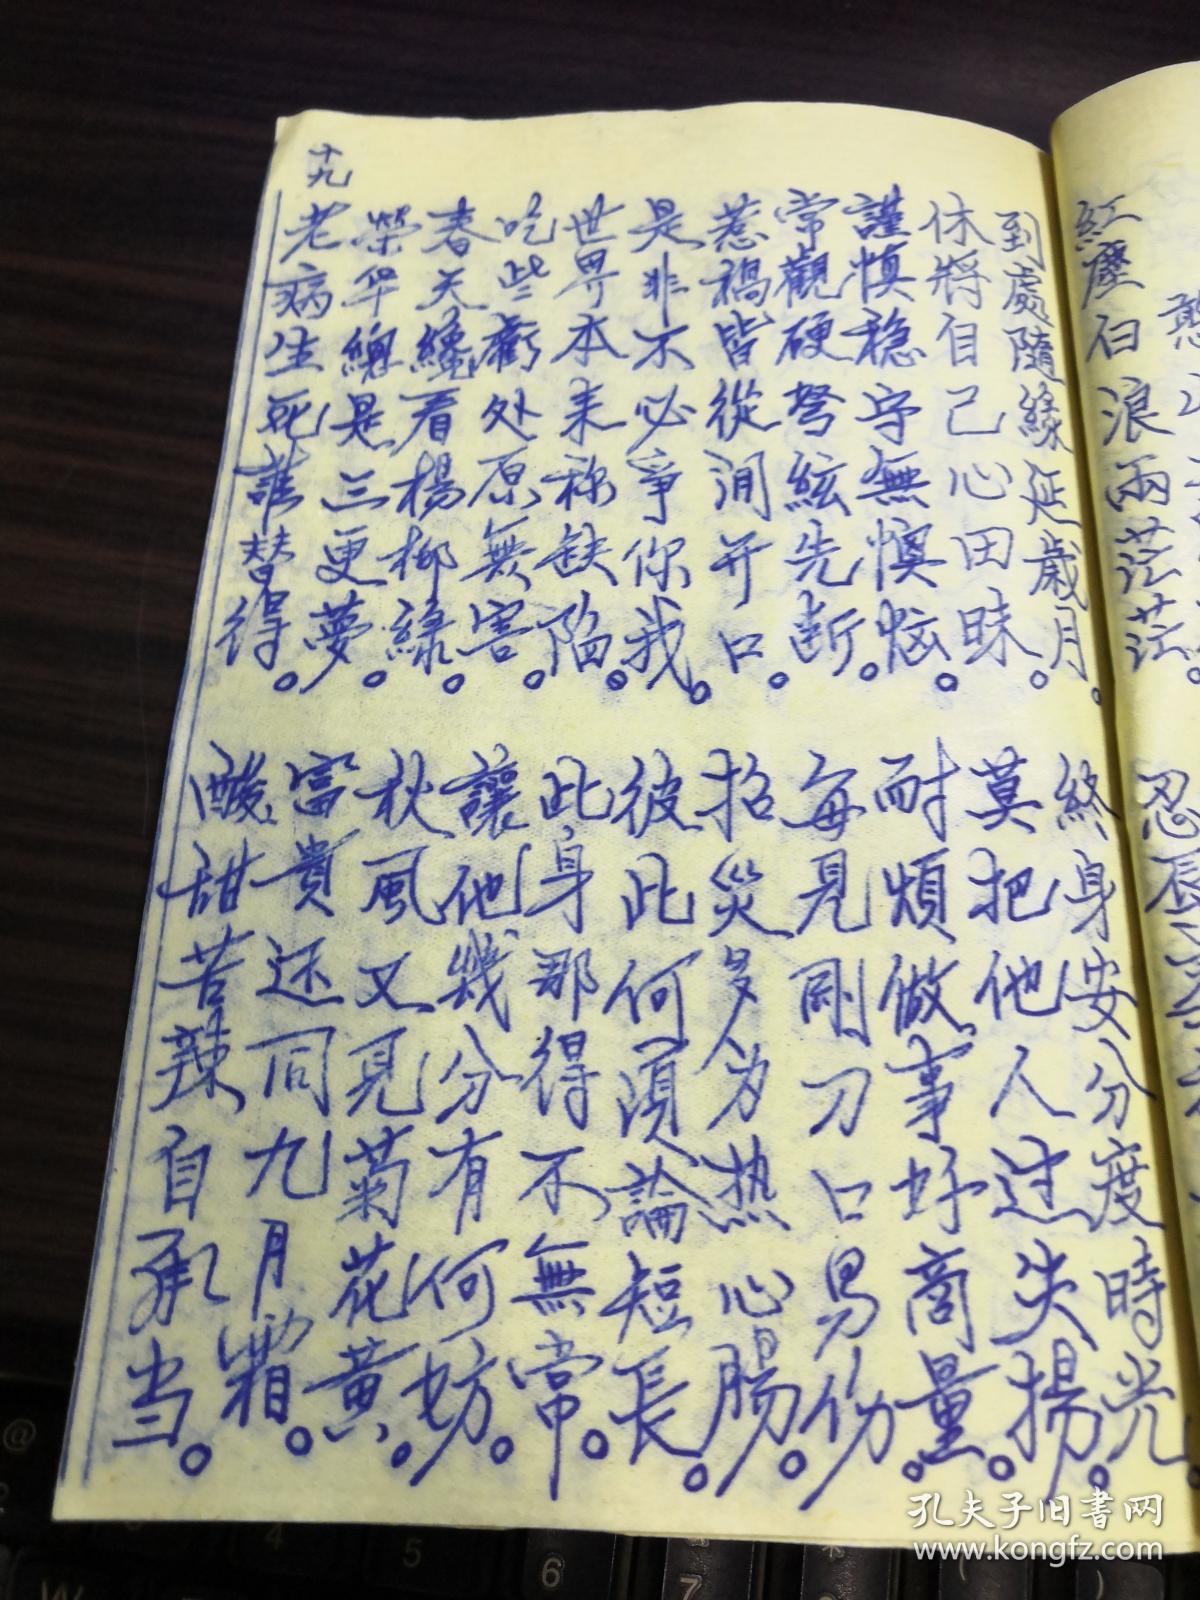 紅塵白浪兩茫茫。
忍辱
到處隨緣延歲月。
終身安分度時光。
休將自己心田昧。
莫把他人过失揚。
謹慎稳守無懊惱。
耐煩做事好商量。
常觀硬弩絃先断。
每見剛刀口易伤。
惹禍皆從閒开口。
招災多为热心腸。
是非不必爭你我。
彼此何須論短長。
世界本来称缺陷。
此身那得不無常。
吃些虧处原無害。
讓他幾分有何妨。
春天纔看楊柳綠。
秋風又見菊花黃。
榮华總是三更夢。
富貴还同九月霜。
老病生死誰替得。
酸甜苦辣自承当。
十九
孔夫子旧书网
www.kongfz.com